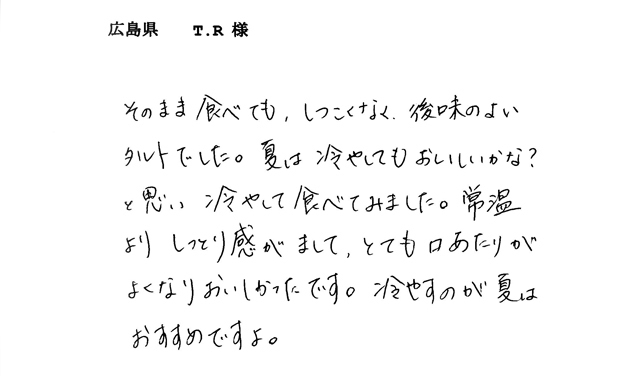 広島県 T.R 様
そのまま食べても、しつこくなく、後味のよい
タルトでした。夏は冷やしてもおいしいかな?
と思い冷やして食べてみました。常温
よりしっとり感がまして、とても口あたりが
よくなりおいしかったです。冷やすのが夏は
おすすめですよ。